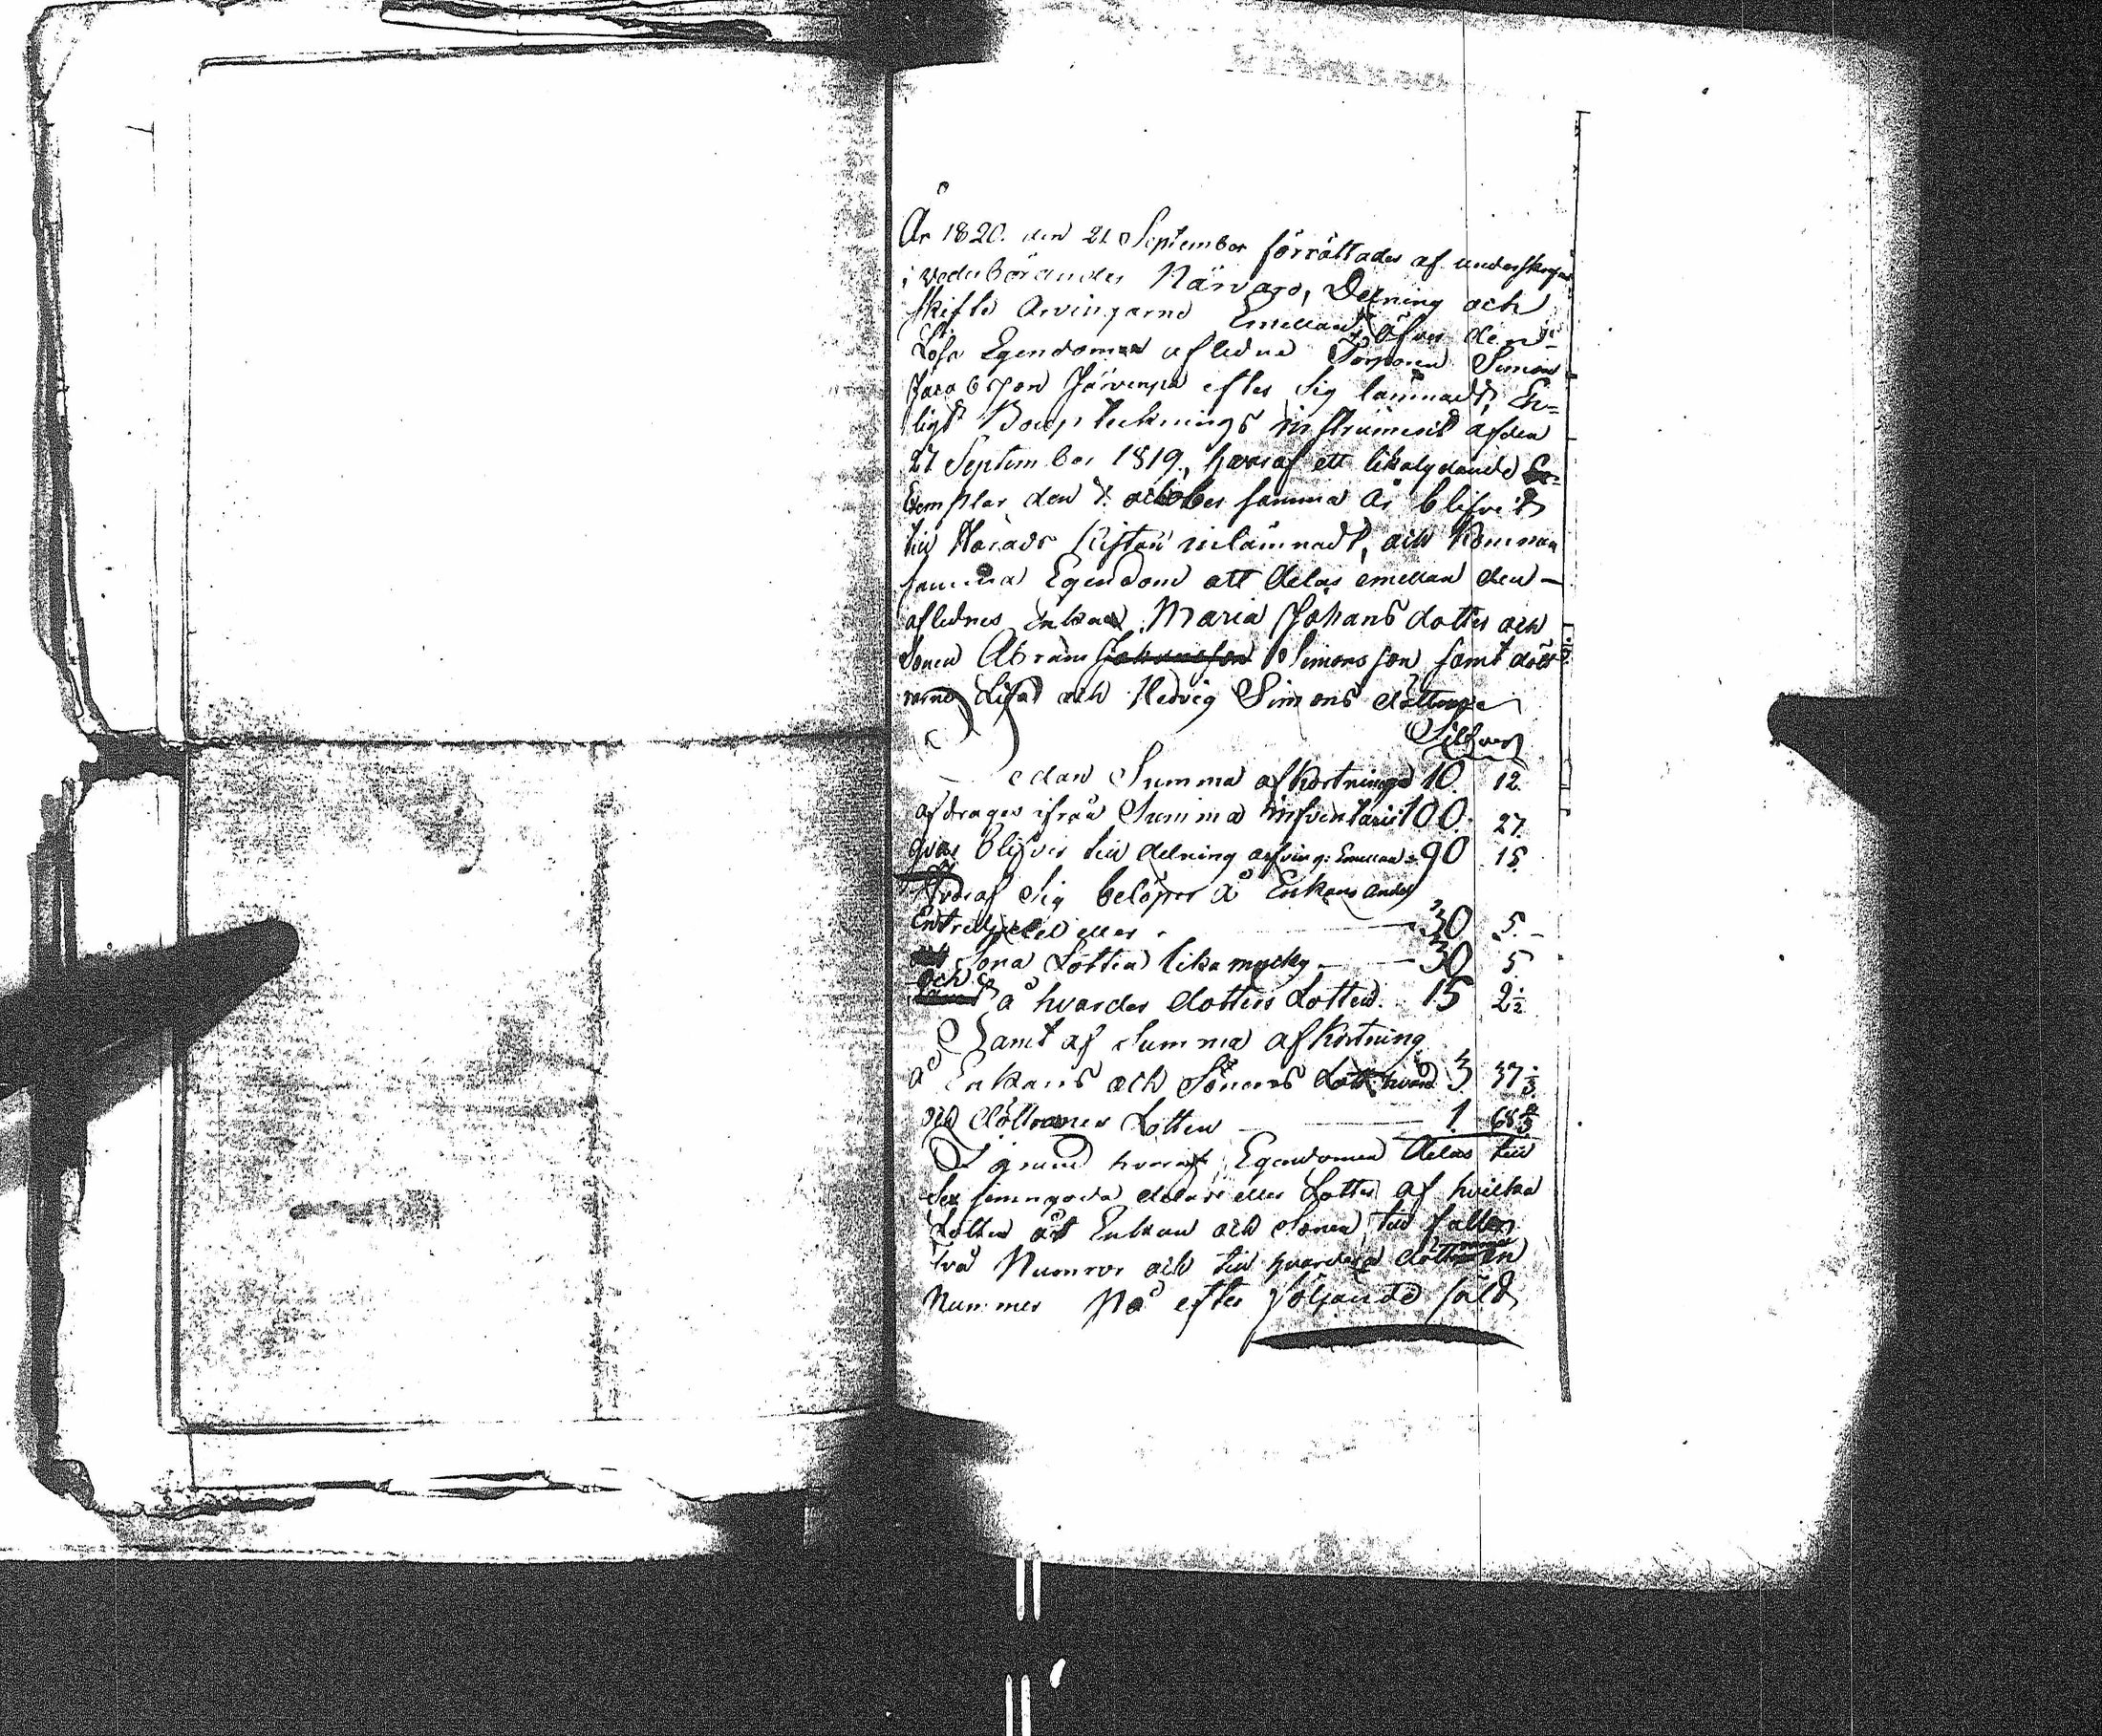 År 1820. den 21 September förrättades af underskrefne
i vederbörandes Närvaro, Delning och
skifte Arvingarne Emellan, öfver den
Lösa Egendomen afledne Torparen Simon
Jacobsson Järvenpä efter sig lämnadt, En-
ligt Bouptecknings instrument af den
27 September 1819, hvaraf ett likalydande
Exemplar den 7. october samma År blifvit
till Härads Kistan inlämnadt, och kommer
samma Egendom att delas emellan den
aflednes Enkan Maria Johans dotter och
Sonen Abram Johansson Simonsson samt dött
rarne Lisa och Hedvig Simons döttrar
Silfver
edan Summa afkortningen 10. 12.
afdrages ifrån Summa Infventarii 100. 27.
qvar blifver till delning arfving: Emellan = 90 15.
Hvaraf sig belöper å Enkans andel
En tredjedel eller 30 5.
Sona Lotten lika mycky 30 5
och å hvarder dotters Lotten. 15 2 1/2
Samt af Summa afkortning
å Enkans och Sonens Lott hvard 3 37 1/3
och döttrarnes Lotten 1 68 2/3
I grund hvaraf Egendomen delas till
sex jemngoda delar eller Lotter af hvilka
Lotter åt Enkan och Sonen till faller
två Numror och till hvardera dottren en
Nummer På efter följande sält